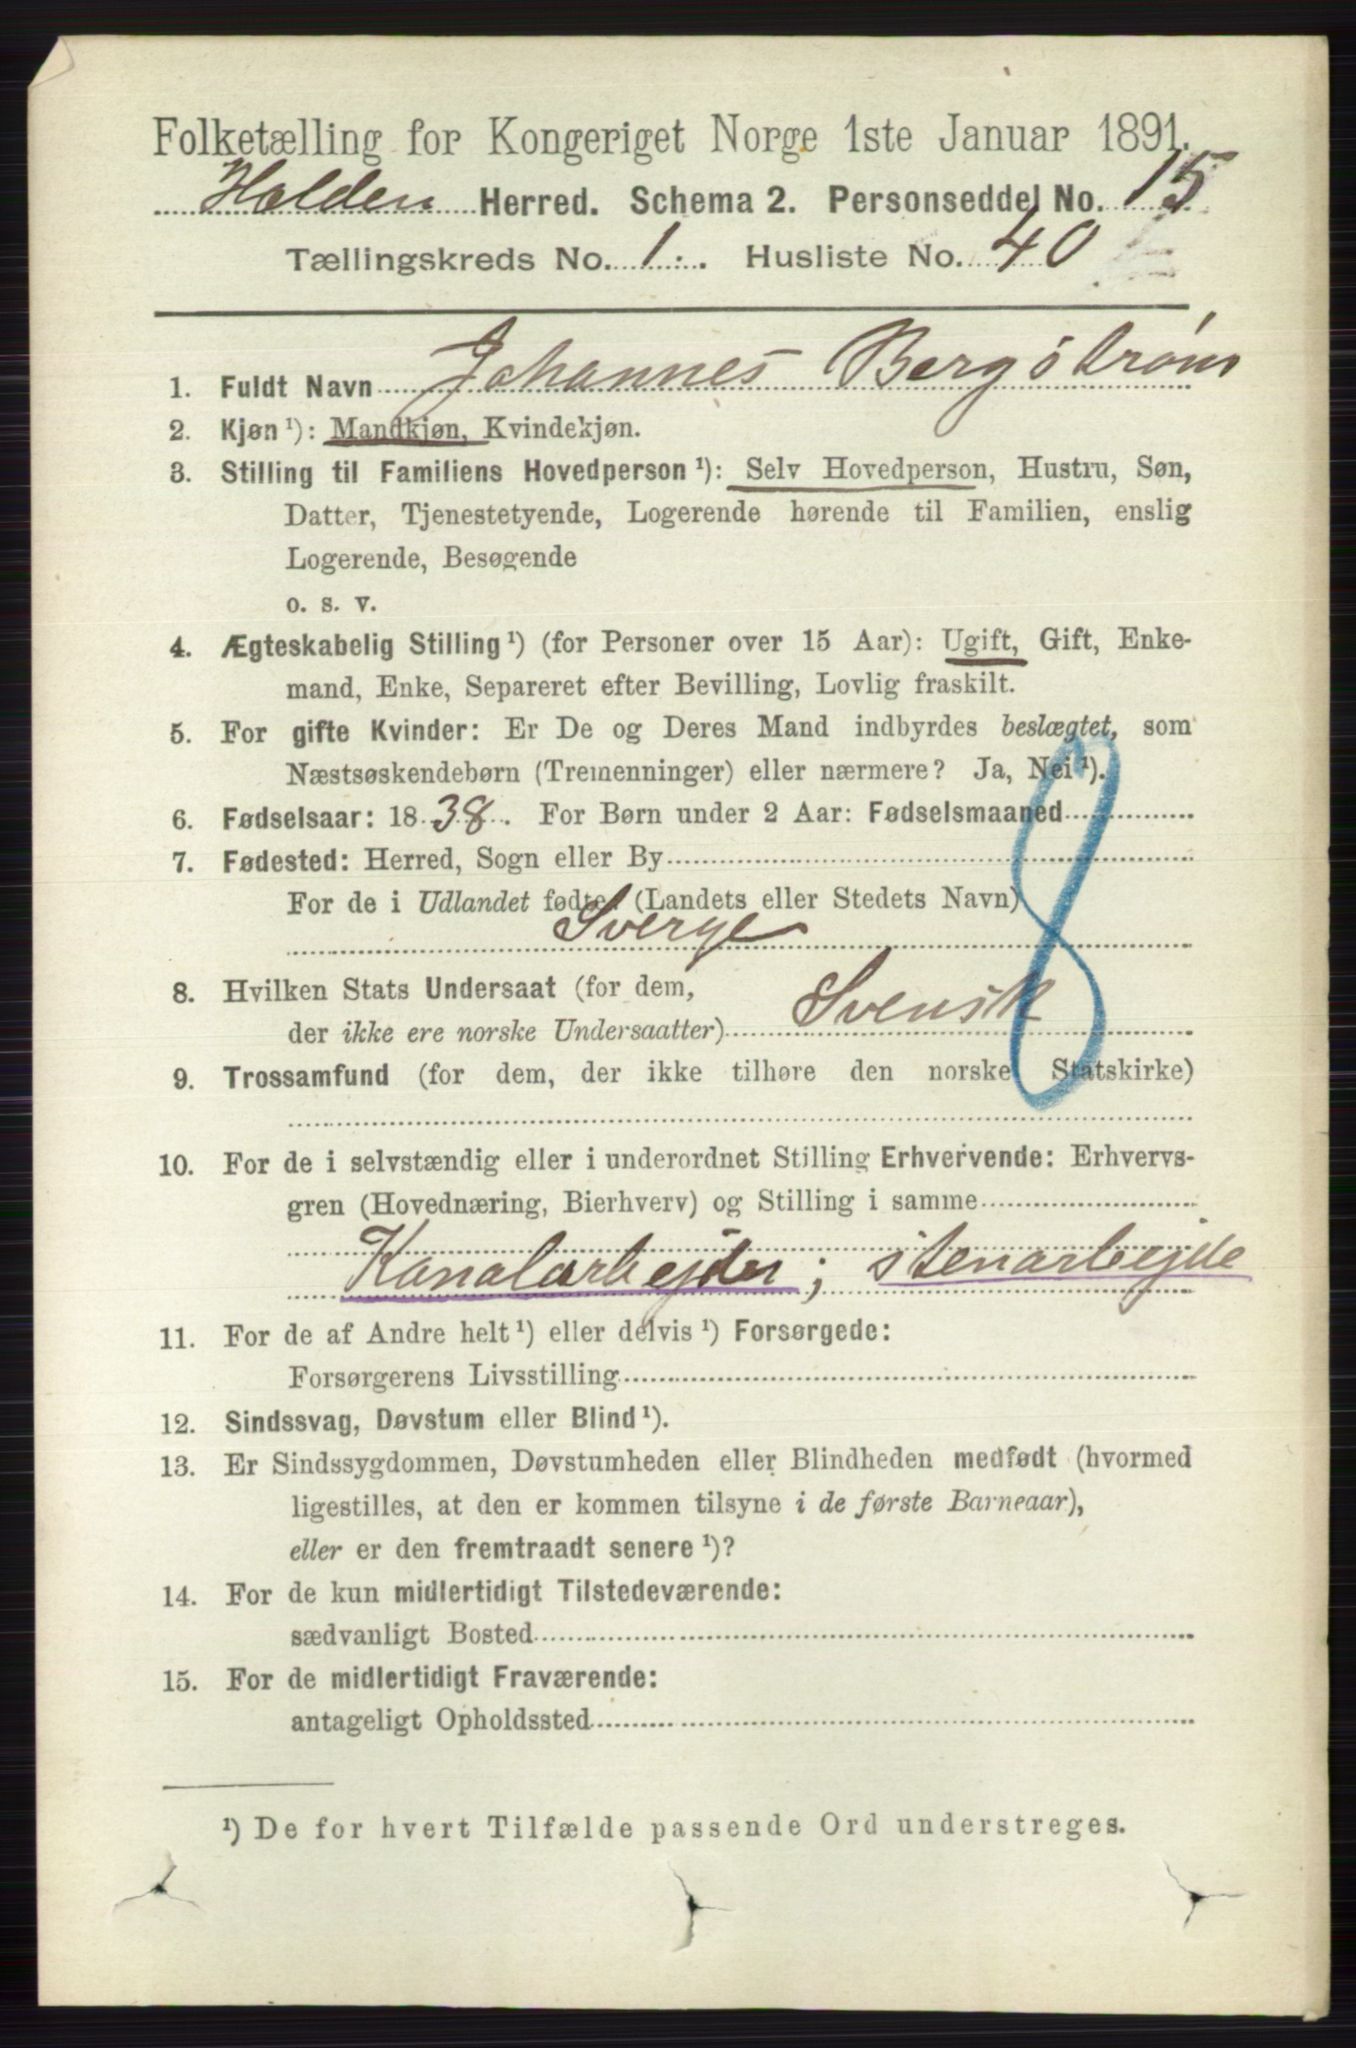 Folketælling for Kongeriget Norge 1ste Januar 1891.
Holden Herred. Schema 2. Personseddel No. 15
Tællingskreds No. 1. Husliste No. 40
1. Fuldt Navn Johannes Bergstrøm
2. Kjøn ¹): Mandkjøn, Kvindekjøn.
3. Stilling til Familiens Hovedperson ¹): Selv Hovedperson, Hustru, Søn,
Datter, Tjenestetyende, Logerende hørende til Familien, enslig
Logerende, Besøgende
o. s. v.
4. Ægteskabelig Stilling ¹) (for Personer over 15 Aar): Ugift, Gift, Enke-
mand, Enke, Separeret efter Bevilling, Lovlig fraskilt.
5. For gifte Kvinder: Er De og Deres Mand indbyrdes beslægtet, som
Næstsøskendebørn (Tremenninger) eller nærmere? Ja, Nei ¹).
6. Fødselsaar: 1838. For Børn under 2 Aar: Fødselsmaaned
7. Fødested: Herred, Sogn eller By
For de i Udlandet fødte (Landets eller Stedets Navn)
Sverge
8
8. Hvilken Stats Undersaat (for dem,
der ikke ere norske Undersaatter) Svensk
9. Trossamfund (for dem, der ikke tilhøre den norske Statskirke)
10. For de i selvstændig eller i underordnet Stilling Erhvervende: Erhvervs-
gren (Hovednæring, Bierhverv) og Stilling i samme
Kanalarbejder; stenarbejde
11. For de af Andre helt ¹) eller delvis ¹) Forsørgede:
Forsørgerens Livsstilling
12. Sindssvag, Døvstum eller Blind ¹).
13. Er Sindssygdommen, Døvstumheden eller Blindheden medfødt (hvormed
ligestilles, at den er kommen tilsyne i de første Barneaar),
eller er den fremtraadt senere ¹)?
14. For de kun midlertidigt Tilstedeværende:
sædvanligt Bosted
15. For de midlertidigt Fraværende:
antageligt Opholdssted
¹) De for hvert Tilfælde passende Ord understreges.